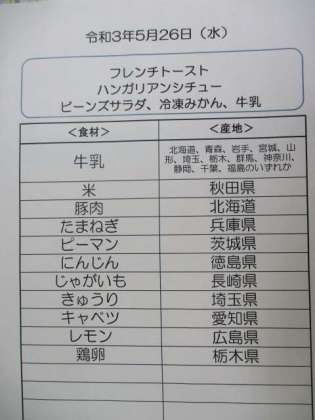 令和3年5月26日（水）
フレンチトースト
ハンガリアンシチュー
ビーンズサラダ、冷凍みかん、牛乳
＜食材＞ ＜産地＞
牛乳 北海道、青森、岩手、宮城、山
形、埼玉、栃木、群馬、神奈川、
静岡、千葉、福島のいずれか
米 秋田県
豚肉 北海道
たまねぎ 兵庫県
ピーマン 茨城県
にんじん 徳島県
じゃがいも 長崎県
きゅうり 埼玉県
キャベツ 愛知県
レモン 広島県
鶏卵 栃木県